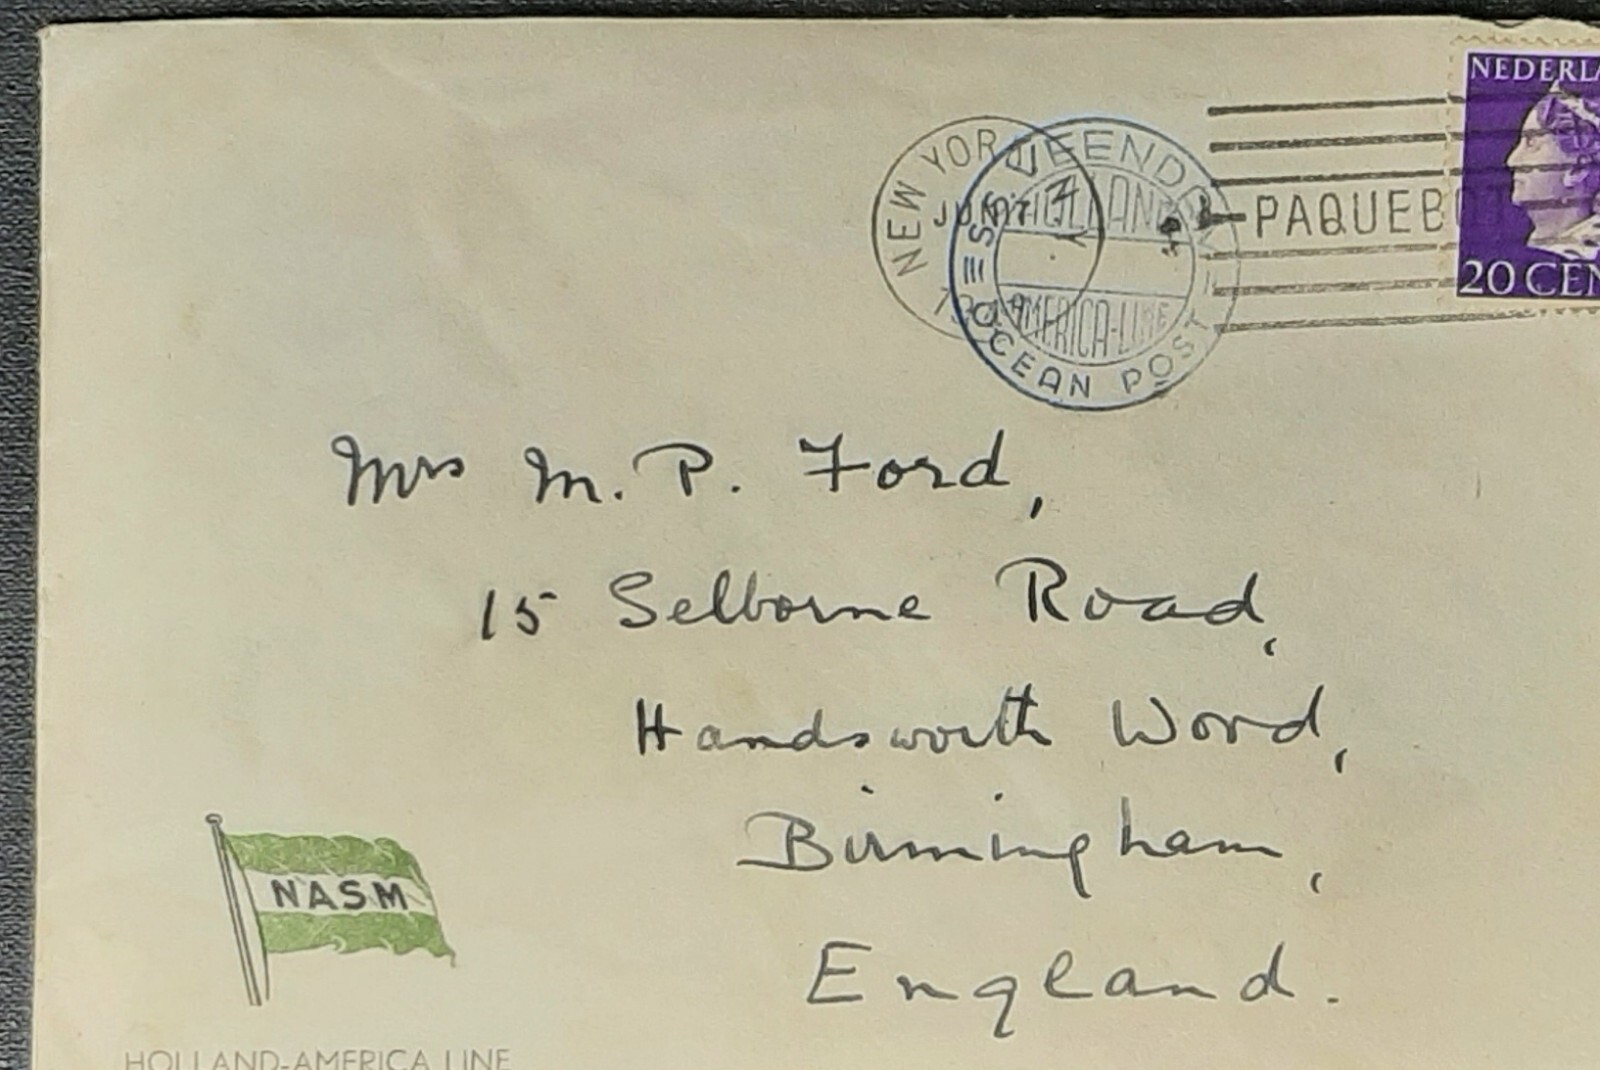 NEDERLA
NEW YORK N Y
JUN 7
S.S. VEENDAM
HOLLAND
AMERICA-LINE
OCEAN POST
PAQUEB
20 CEN
Mrs M. P. Ford,
15 Selborne Road,
Handsworth Wood,
Birmingham,
England.
NASM
HOLLAND-AMERICA LINE